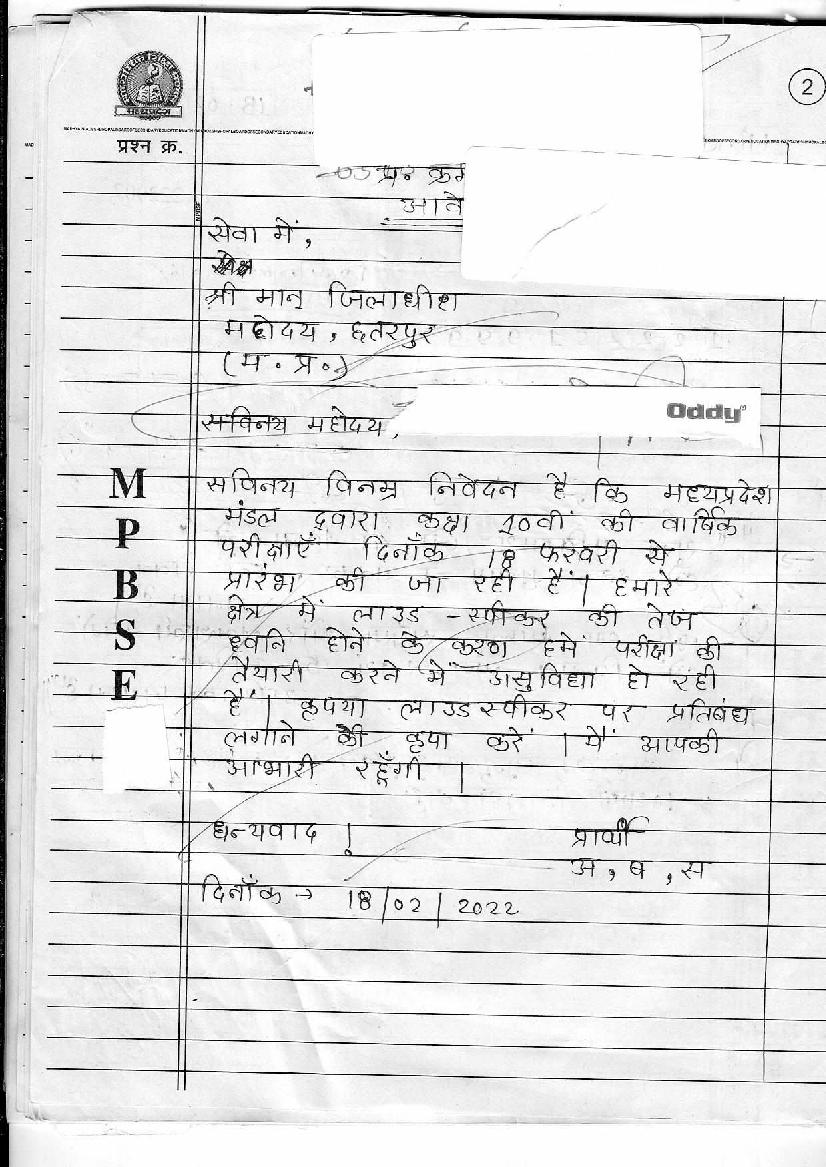 2
मध्यप्रदेश
प्रश्न क्र.
सेवा में,
श्री मान् जिलाधीश
महोदय, छतरपुर
(म. प्र.)
Oddy
सविनय महोदय,
सविनय विनम्र निवेदन है कि मध्यप्रदेश
मंडल द्वारा कक्षा 10वीं की वार्षिक
परीक्षाएँ दिनाँक 18 फरवरी से
प्रारंभ की जा रही हैं। हमारे
क्षेत्र में लाउड -स्पीकर की तेज
ध्वनि होने के करण हमें परीक्षा की
तैयारी करने में असुविधा हो रही
हैं। कृपया लाउडस्पीकर पर प्रतिबंध
लगाने की कृपा करें । मैं आपकी
आभारी रहूँगी ।
धन्यवाद !
प्रार्थी
अ, ब, स
दिनाँक → 18/02/2022
M
P
B
S
E